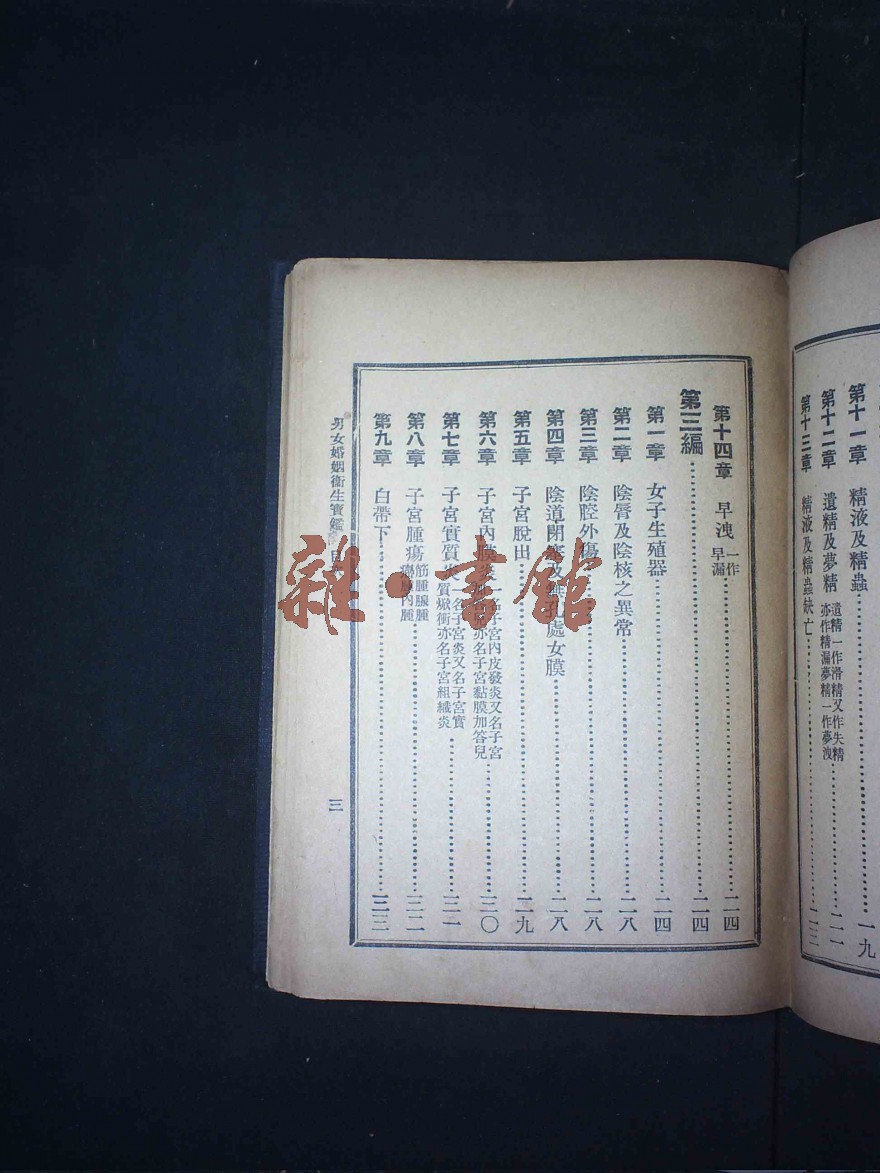 第十一章　精液及精蟲……一九
第十二章　遺精及夢精 遺精一作滑精又作失精亦作精漏夢精一作夢洩……二一
第十三章　精液及精蟲缺亡……二三
第十四章　早洩 一作早漏……二四
第三編……二四
第一章　女子生殖器……二四
第二章　陰脣及陰核之異常……二八
第三章　陰腔外傷……二八
第四章　陰道閉塞及　處女膜……二八
第五章　子宮脫出……二九
第六章　子宮內膜炎 一名子宮內皮發炎又名子宮　亦名子宮黏膜加答兒……三〇
第七章　子宮實質炎 一名子宮炎又名子宮實質焮衝亦名子宮組織炎……三一
第八章　子宮腫瘍 筋腫腺腫　腫肉腫……三二
第九章　白帶下……三三
男女婚姻衞生寶鑑　目
三
雜·書館